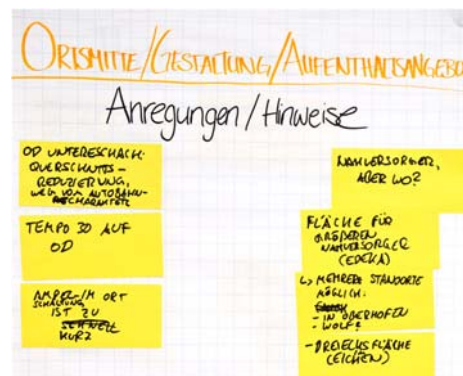 ORTSMITTE/GESTALTUNG/AUFENTHALTSANGEBO
Anregungen/Hinweise
OD UNTERESCHACH:
QUERSCHNITTS-
REDUZIERUNG,
WEG VOM AUTOBAHN-
CHARAKTER
TEMPO 30 AUF
OD
AMPEL-IM ORT
SCHALTUNG
IST ZU
SCHNELL
KURZ
NAHVERSORGER,
ABER WO?
FLÄCHE FÜR
GRÖßEREN
NAHVERSORGER
(EDEKA)
↳ MEHRERE STANDORTE
MÖGLICH:
- IN OBERHOFEN
- WOLF?
- DREIECKSFLÄCHE
(EICHEN)